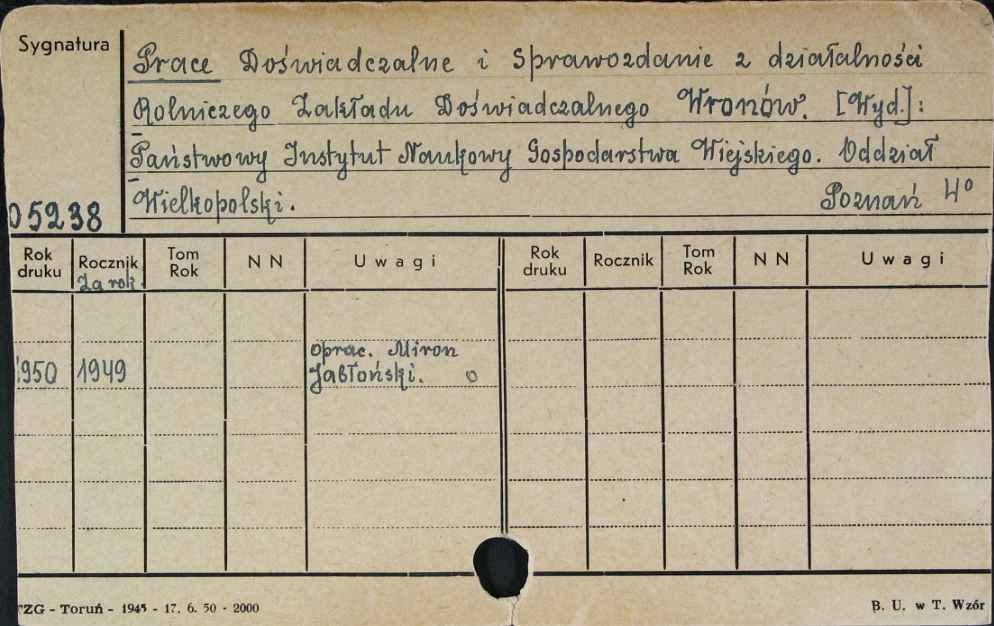 Sygnatura
Prace Doświadczalne i Sprawozdanie z działalności
Rolniczego Zakładu Doświadczalnego Wronów. [Wyd.]:
Państwowy Instytut Naukowy Gospodarstwa Wiejskiego. Oddział
Wielkopolski. Poznań 4°
05238
Rok druku Rocznik Tom Rok N N Uwagi Rok druku Rocznik Tom Rok N N Uwagi
Za rok.
oprac. Miron
950 1949 Jabłoński. o
TZG - Toruń - 1945 - 17. 6. 50 - 2000 B. U. w T. Wzór